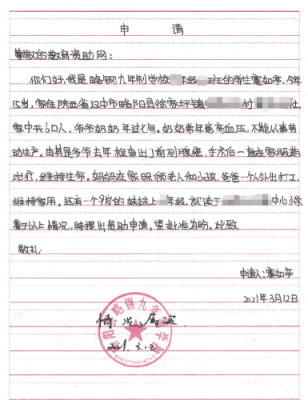 申 请
尊敬的教育资助网:
你们好,我是略阳九年制学校 年级 班的学生 ,今年
岁,家住陕西省汉中市略阳县徐家坪镇 村 社
家中共6口人,爷爷奶奶年过七旬。奶奶常年患高血压,不能从事劳
动生产。 爷爷去年检查出了前列腺癌,手术后一直在家服药
治疗,维持生命。妈妈在家照顾老人和小孩,爸爸一人外出打工,
维持家用。还有一个9岁的妹妹上 年级,就读于 中心小学
鉴于以上情况,特提出帮助申请,望批准为盼,此致
敬礼
申请人:
2021年3月12日
情况属实
2021.3.12